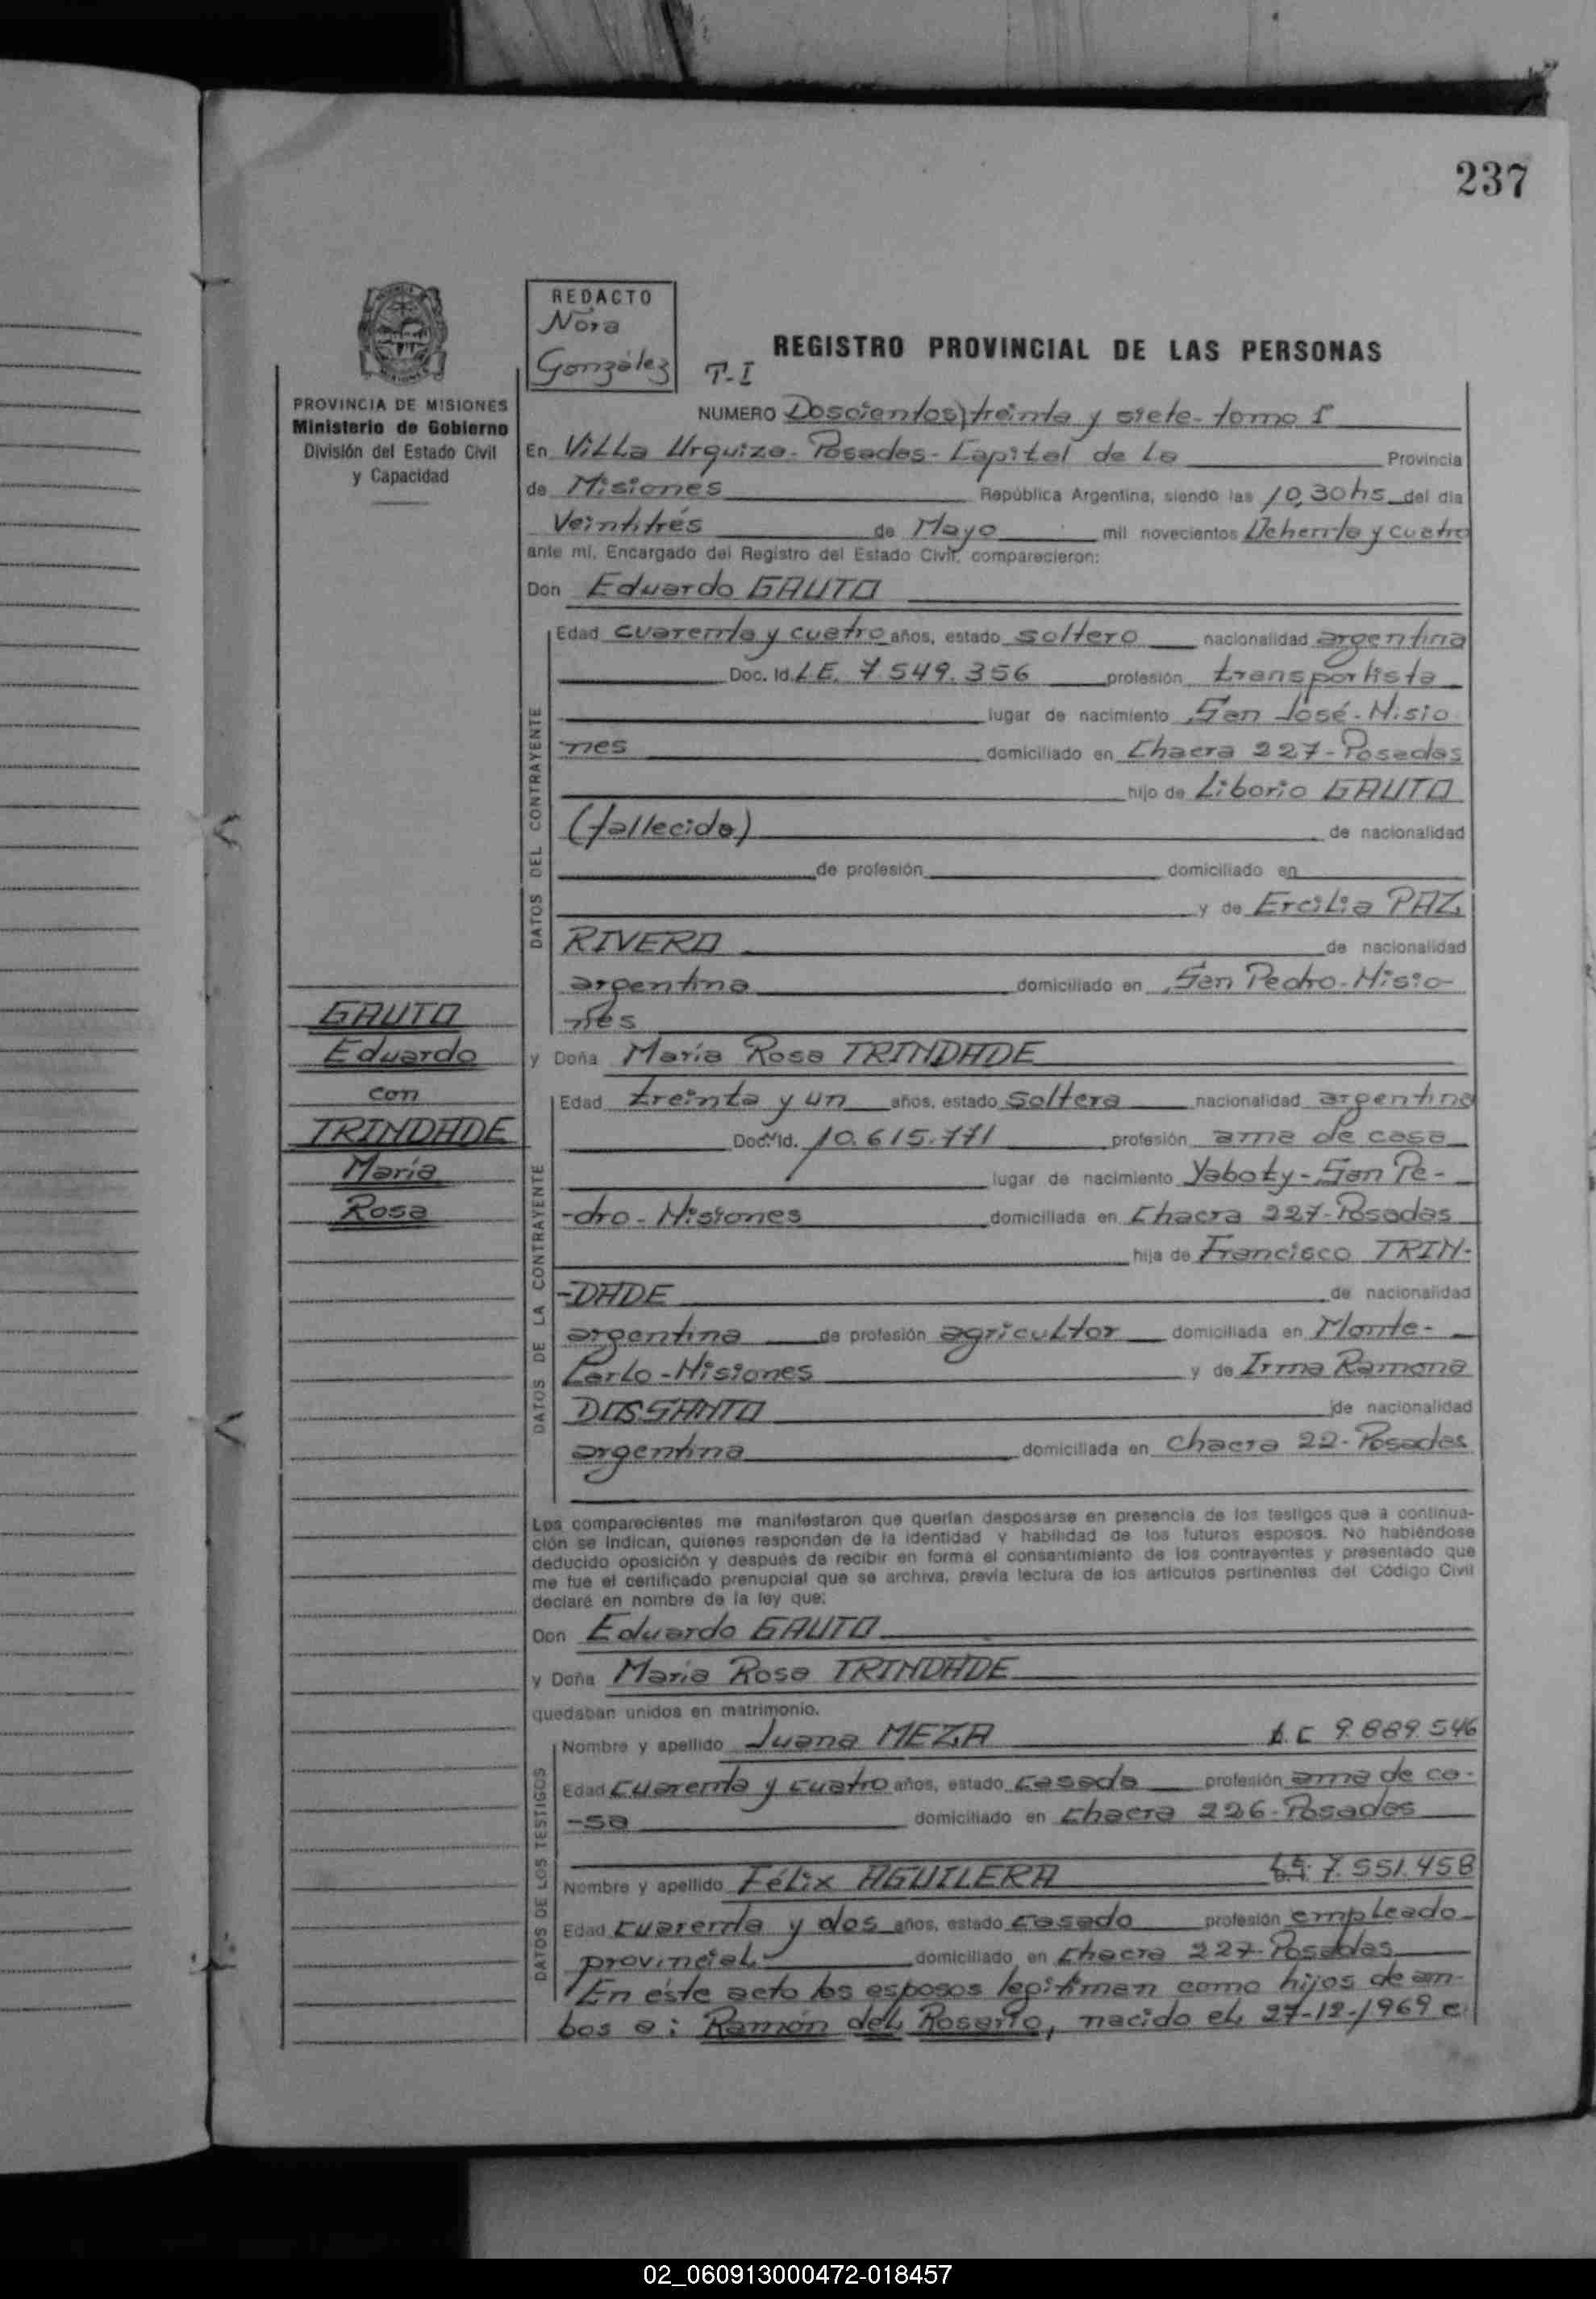 237
REDACTO
Nora
González
T-I
REGISTRO PROVINCIAL DE LAS PERSONAS
PROVINCIA DE MISIONES
Ministerio de Gobierno
División del Estado Civil
y Capacidad
NUMERO Doscientos treinta y siete - tomo I
En Villa Urquiza - Posadas - Capital de La Provincia
de Misiones República Argentina, siendo las 10,30 hs del día
Veintitrés de Mayo mil novecientos Ochenta y cuatro
ante mí, Encargado del Registro del Estado Civil, comparecieron:
Don Eduardo GAUTO
DATOS DEL CONTRAYENTE
Edad cuarenta y cuatro años, estado soltero nacionalidad argentina
Doc. Id. L.E. 7.549.356 profesión transportista
lugar de nacimiento San José - Misio
nes domiciliado en Chacra 227 - Posadas
hijo de Liborio GAUTO
(fallecido) de nacionalidad
de profesión domiciliado en
y de Ercilia PAZ
RIVERO de nacionalidad
argentina domiciliado en San Pedro - Misio-
nes
GAUTO
Eduardo
con
TRINDADE
María
Rosa
y Doña María Rosa TRINDADE
DATOS DE LA CONTRAYENTE
Edad treinta y un años, estado soltera nacionalidad argentina
Doc. Id. 10.615.771 profesión ama de casa
lugar de nacimiento Yaboty - San Pe-
-dro - Misiones domiciliada en Chacra 227 - Posadas
hija de Francisco TRIN-
-DADE de nacionalidad
argentina de profesión agricultor domiciliada en Monte-
Carlo - Misiones y de Irma Ramona
DOS SANTO de nacionalidad
argentina domiciliada en Chacra 22 - Posadas
Los comparecientes me manifestaron que querían desposarse en presencia de los testigos que a continua-
ción se indican, quienes responden de la identidad y habilidad de los futuros esposos. No habiéndose
deducido oposición y después de recibir en forma el consentimiento de los contrayentes y presentado que
me fue el certificado prenupcial que se archiva, previa lectura de los artículos pertinentes del Código Civil
declaré en nombre de la ley que:
Don Eduardo GAUTO
y Doña María Rosa TRINDADE
quedaban unidos en matrimonio.
DATOS DE LOS TESTIGOS
Nombre y apellido Juana MEZA L.C 9.889.546
Edad cuarenta y cuatro años, estado casada profesión ama de ca-
-sa domiciliado en chacra 226 - Posadas
Nombre y apellido Félix AGUILERA L.E. 7.551.458
Edad cuarenta y dos años, estado casado profesión empleado
provincial domiciliado en chacra 227 - Posadas
En éste acto los esposos legitiman como hijos de am-
bos a: Ramón del Rosario, nacido el 27-12-1969 e
02_060913000472-018457